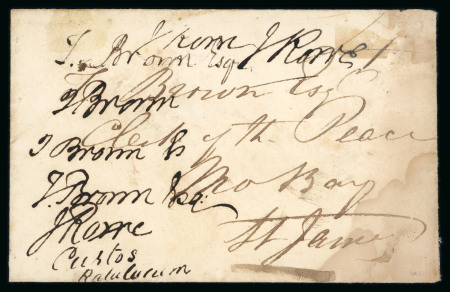 J Rowe J Rowe
T. Brown Esqr
T Brown Esqr
T Brown
Clerk of th Peace
T Brown Es
Mo Bay
T. Brown Esq:
J Rowe
St James
Custos
Ratulorum